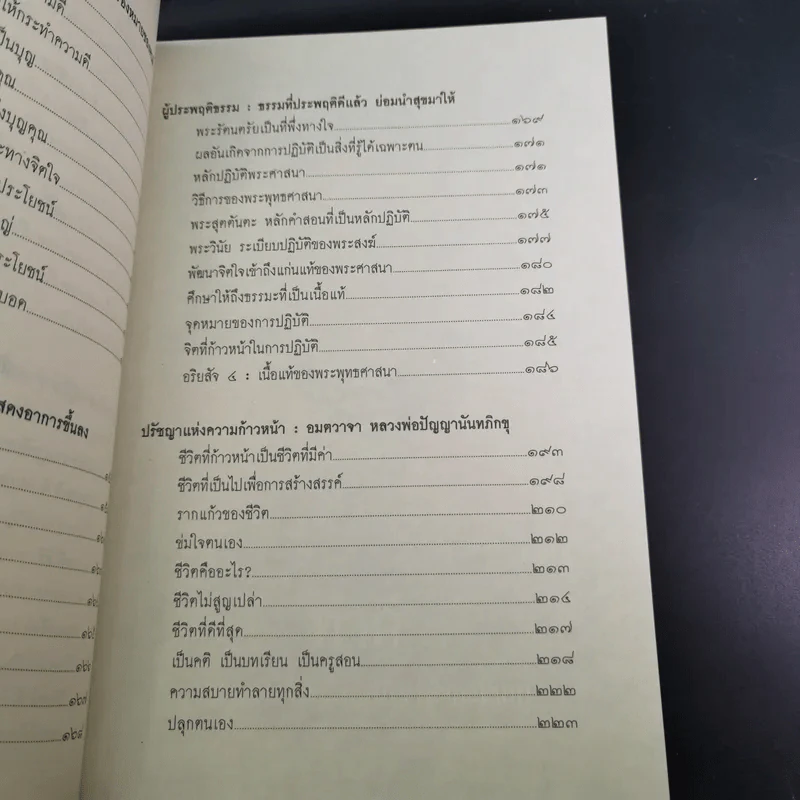 ให้กระทำความดี
เป็นบุญ
บุญคุณ
ทางจิตใจ
ประโยชน์
ประโยชน์
บอด
แสดงอาการขึ้นลง
๑๒๗
๑๒๘
ผู้ประพฤติธรรม : ธรรมที่ประพฤติดีแล้ว ย่อมนำสุขมาให้
พระรัตนตรัยเป็นที่พึ่งทางใจ ๑๖๙
ผลอันเกิดจากการปฏิบัติเป็นสิ่งที่รู้ได้เฉพาะตน ๑๗๑
หลักปฏิบัติพระศาสนา ๑๗๑
วิธีการของพระพุทธศาสนา ๑๗๓
พระสุตตันตะ หลักคำสอนที่เป็นหลักปฏิบัติ ๑๗๕
พระวินัย ระเบียบปฏิบัติของพระสงฆ์ ๑๗๗
พัฒนาจิตใจเข้าถึงแก่นแท้ของพระศาสนา ๑๘๐
ศึกษาให้ถึงธรรมะที่เป็นเนื้อแท้ ๑๘๒
จุดหมายของการปฏิบัติ ๑๘๔
จิตที่ก้าวหน้าในการปฏิบัติ ๑๘๕
อริยสัจ ๔ : เนื้อแท้ของพระพุทธศาสนา ๑๘๖
ปรัชญาแห่งความก้าวหน้า : อมตวาจา หลวงพ่อปัญญานันทภิกขุ
ชีวิตที่ก้าวหน้าเป็นชีวิตที่มีค่า ๑๙๓
ชีวิตที่เป็นไปเพื่อการสร้างสรรค์ ๑๙๘
รากแก้วของชีวิต ๒๑๐
ข่มใจตนเอง ๒๑๒
ชีวิตคืออะไร? ๒๑๓
ชีวิตไม่สูญเปล่า ๒๑๔
ชีวิตที่ดีที่สุด ๒๑๗
เป็นคติ เป็นบทเรียน เป็นครูสอน ๒๑๘
ความสบายทำลายทุกสิ่ง ๒๒๒
ปลุกตนเอง ๒๒๓